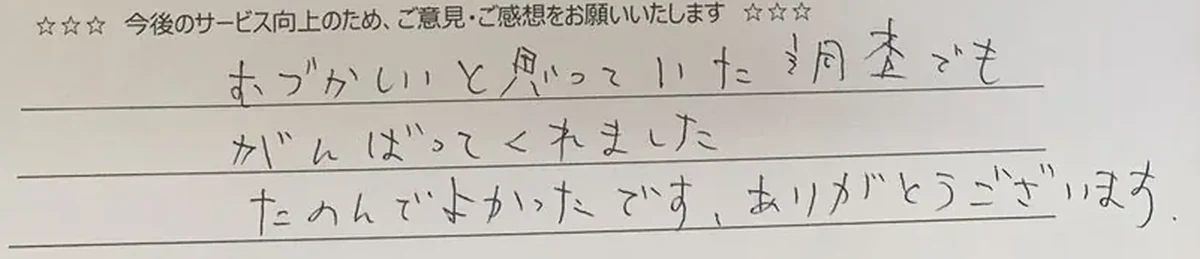 ☆☆☆ 今後のサービス向上のため、ご意見・ご感想をお願いいたします ☆☆☆
むづかしいと思っていた調査でも
がんばってくれました
たのんでよかったです、ありがとうございます.